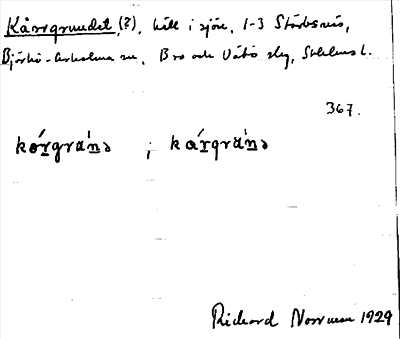 Kårrgrundet, (?), häll i sjön, 1-3 Storbsnäs,
Björkö-Arholma sn, Bro och Vätö skg, Sthlms l.
367.
kórgrán̲ə ; kárgrán̲ə
Richard Norrman 1929